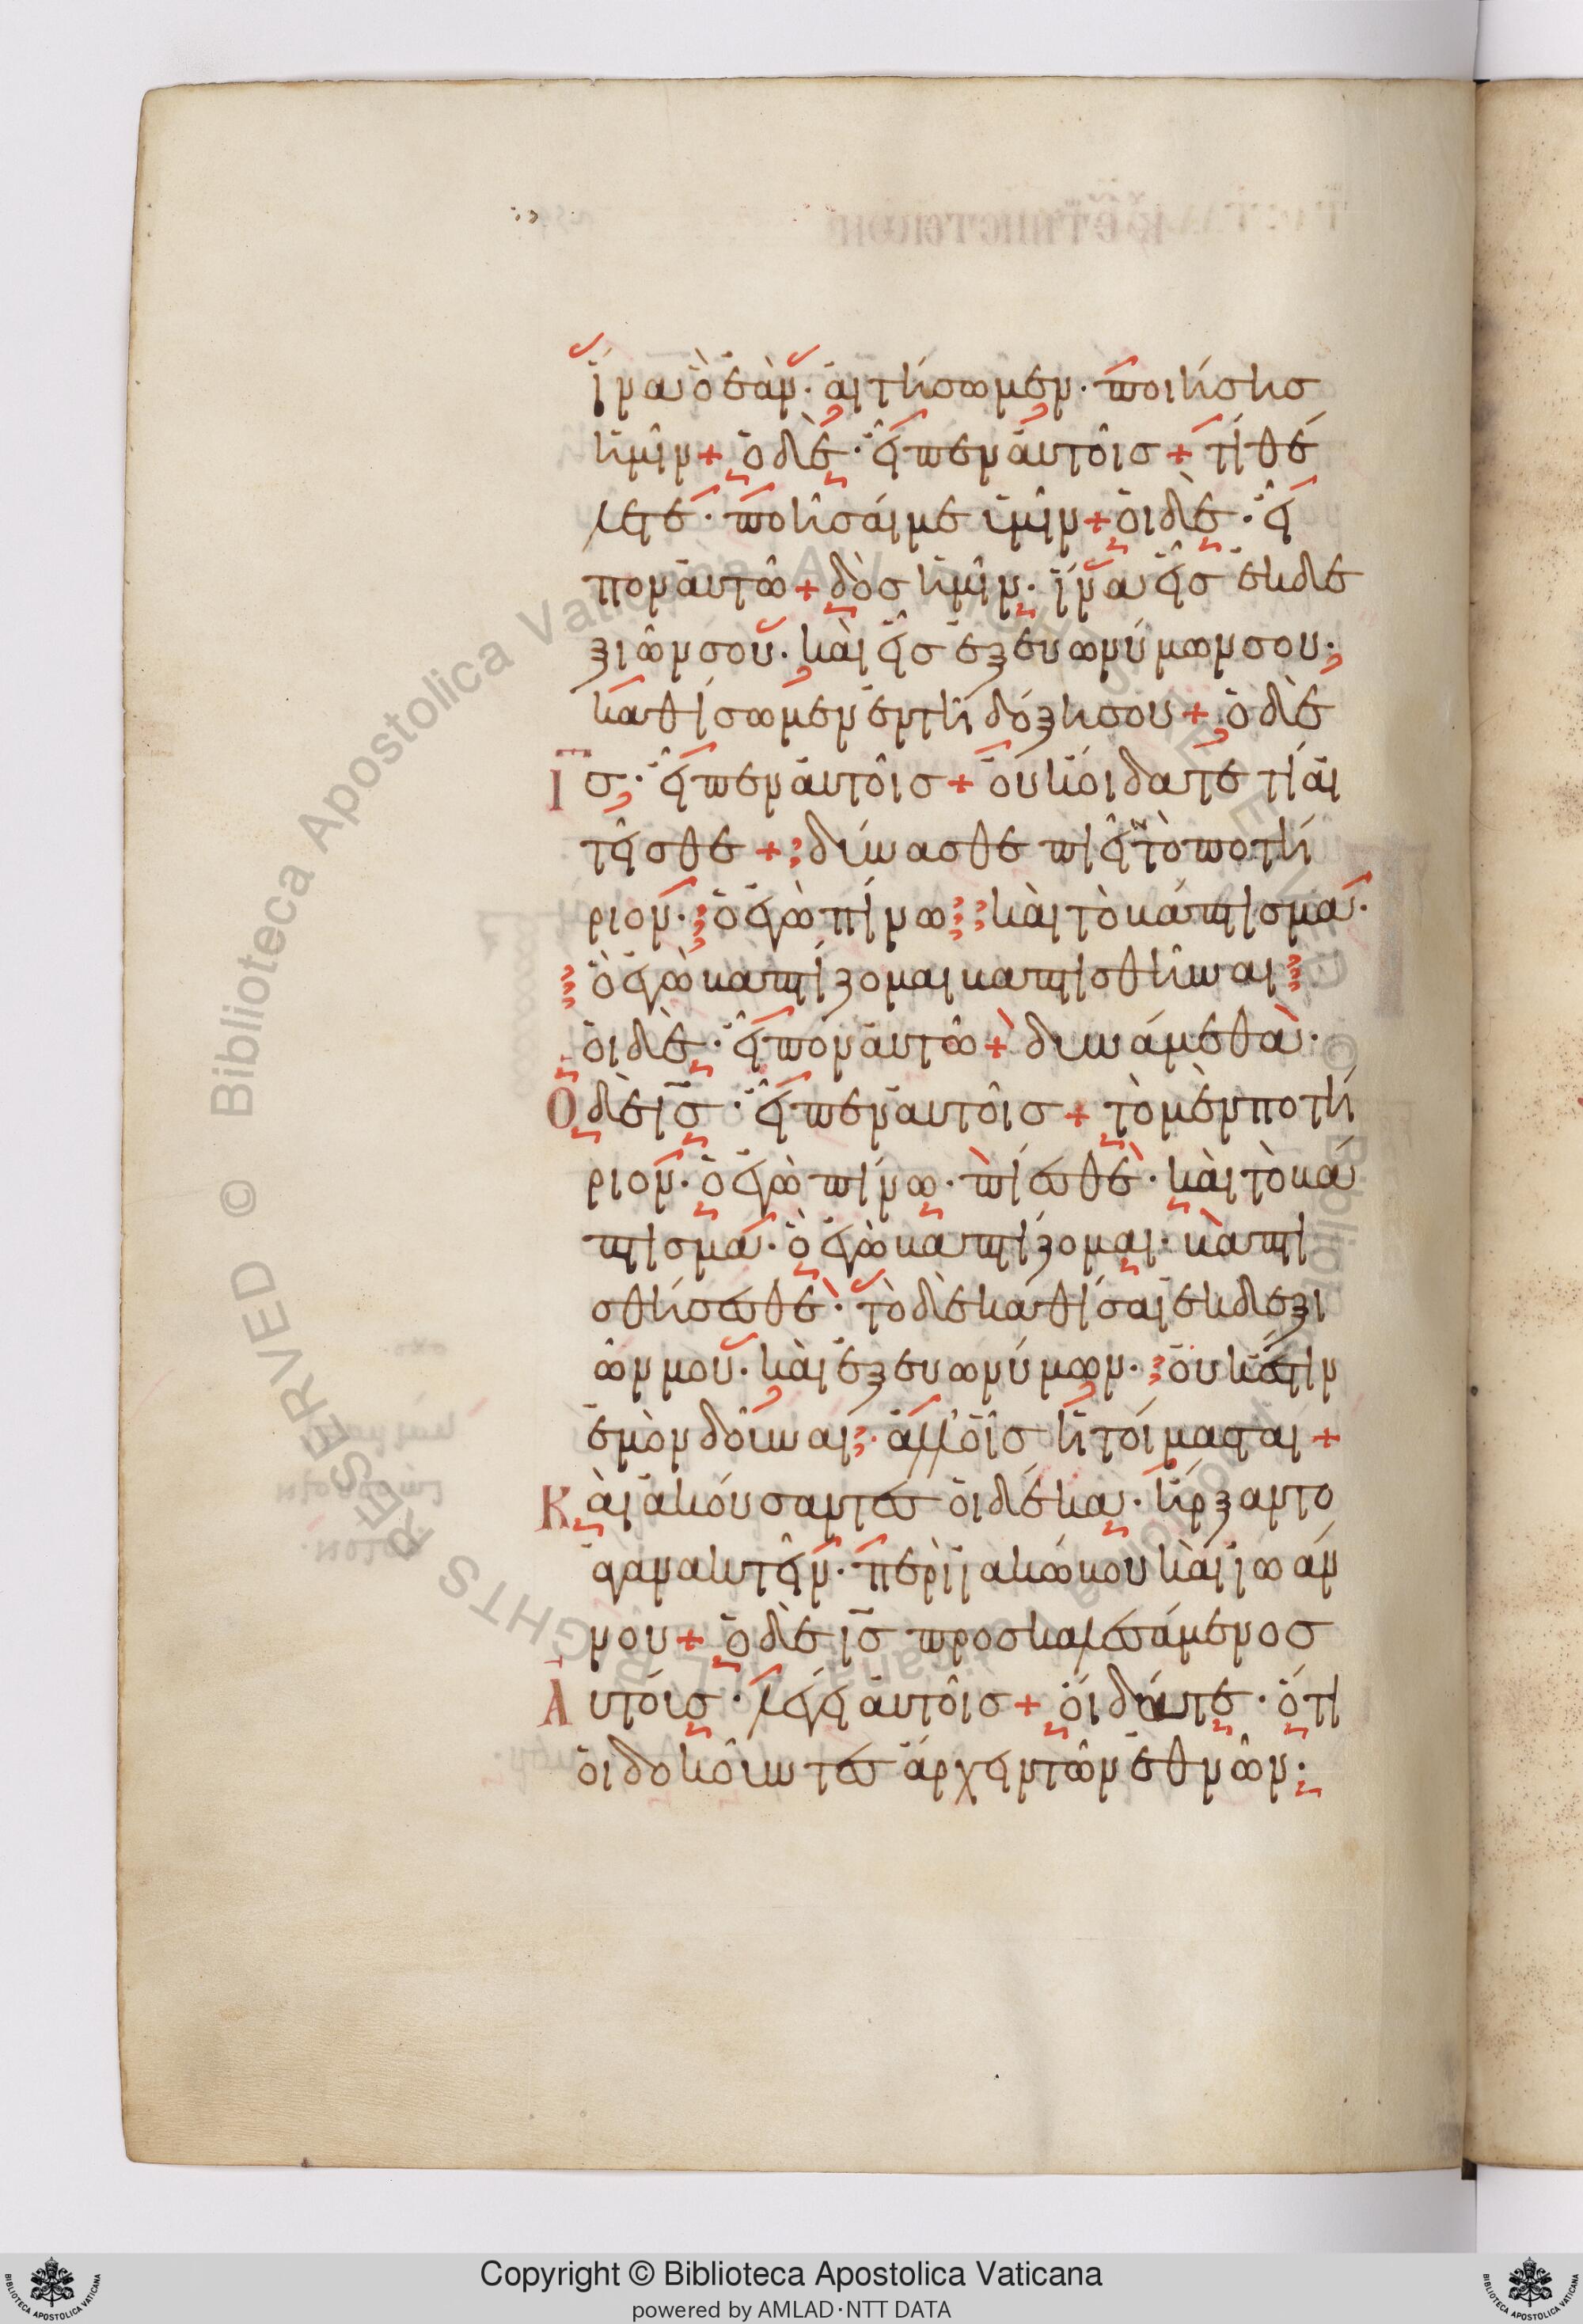 ἵνα ὃ ἐὰν· αἰτήσωμεν· ποιήσης
ἡμῖν + ὁ δὲ· εἶπεν αὐτοῖς + τί θέ
λετε· ποιῆσαί με ὑμῖν + οἱ δὲ· εἶ
πον αὐτῶ + δὸς ἡμῖν· ἵνα εἷς ἐκ δε
ξιῶν σου· καὶ εἷς ἐξ ευωνύμων σου·
καθίσωμεν ἐν τῆ δόξη σου + ὁ δὲ
Ι̅ς̅· εἶπεν αὐτοῖς + οὐκ οἴδατε τί αἰ
τεῖσθε + δύνασθε πιεῖν τὸ ποτή
ριον· ὃ ἐγὼ πίνω καὶ τὸ βάπτισμα·
ὃ ἐγὼ βαπτίζομαι βαπτισθῆναι
οἱ δὲ· εἶπον αὐτῶ + δυνάμεθα·
Ὁ δὲ ι̅ς̅· εἶπεν αὐτοῖς + τὸ μὲν ποτή
ριον· ὃ ἐγὼ πίνω· πίεσθε· καὶ τὸ βά
πτισμα· ὃ ἐγὼ βαπτίζομαι· βαπτι
σθήσεσθε· τὸ δὲ καθίσαι ἐκ δεξι
ῶν μου· καὶ ἐξ ευωνύμων· οὐκ ἔστιν
ἐμὸν δοῦναι· ἀλλ' οἷς ἡτοίμασται +
Καὶ ἀκούσαντες οἱ δέκα· ἤρξαντο
ἀγανακτεῖν· περὶ ἰακώβου καὶ ἰωάν
νου + ὁ δὲ ι̅ς̅ προσκαλεσάμενος
Αὐτοὺς· λέγει αὐτοῖς + οἴδατε· ὅτι
οἱ δοκοῦντες ἄρχειν τῶν ἐθνῶν·
Copyright © Biblioteca Apostolica Vaticana
powered by AMLAD·NTT DATA